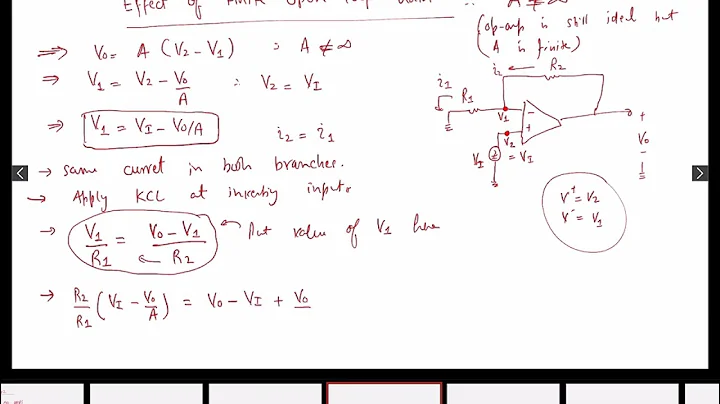 Effect of Finite Open loop Gain : A ≠ ∞
(op-amp is still ideal but
A is finite)
⇒ V0 = A (V2 - V1) ∴ A ≠ ∞
⇒ V1 = V2 - V0/A ∴ V2 = VI
⇒ V1 = VI - V0/A i2 = i1
→ same curret in both branches.
→ Apply KCL at inverting input.
→ V1/R1 = V0 - V1/R2 ← Put value of V1 here
→ R2/R1 (VI - V0/A) = V0 - VI + V0
i2 ← R2
i1
R1
V1
-
+
V2
VI = VI
+
V0
-
V+ = V2
V- = V1